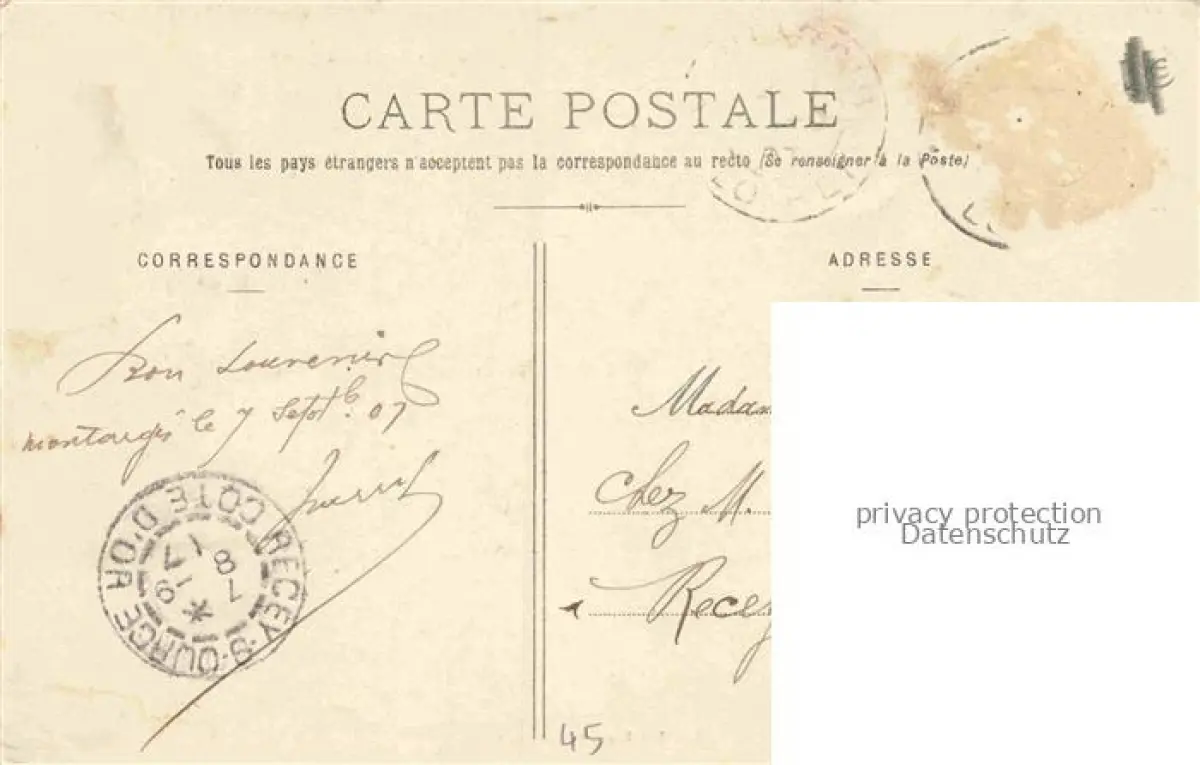 CARTE POSTALE
Tous les pays étrangers n'acceptent pas la correspondance au recto (Se renseigner à la Poste)
CORRESPONDANCE
Bon Souvenir
Montargis le 7 Septb. 07
RECEY-S-OURCE
COTE D'OR
ADRESSE
Madam
Chez M.
à Recey
privacy protection
Datenschutz
45